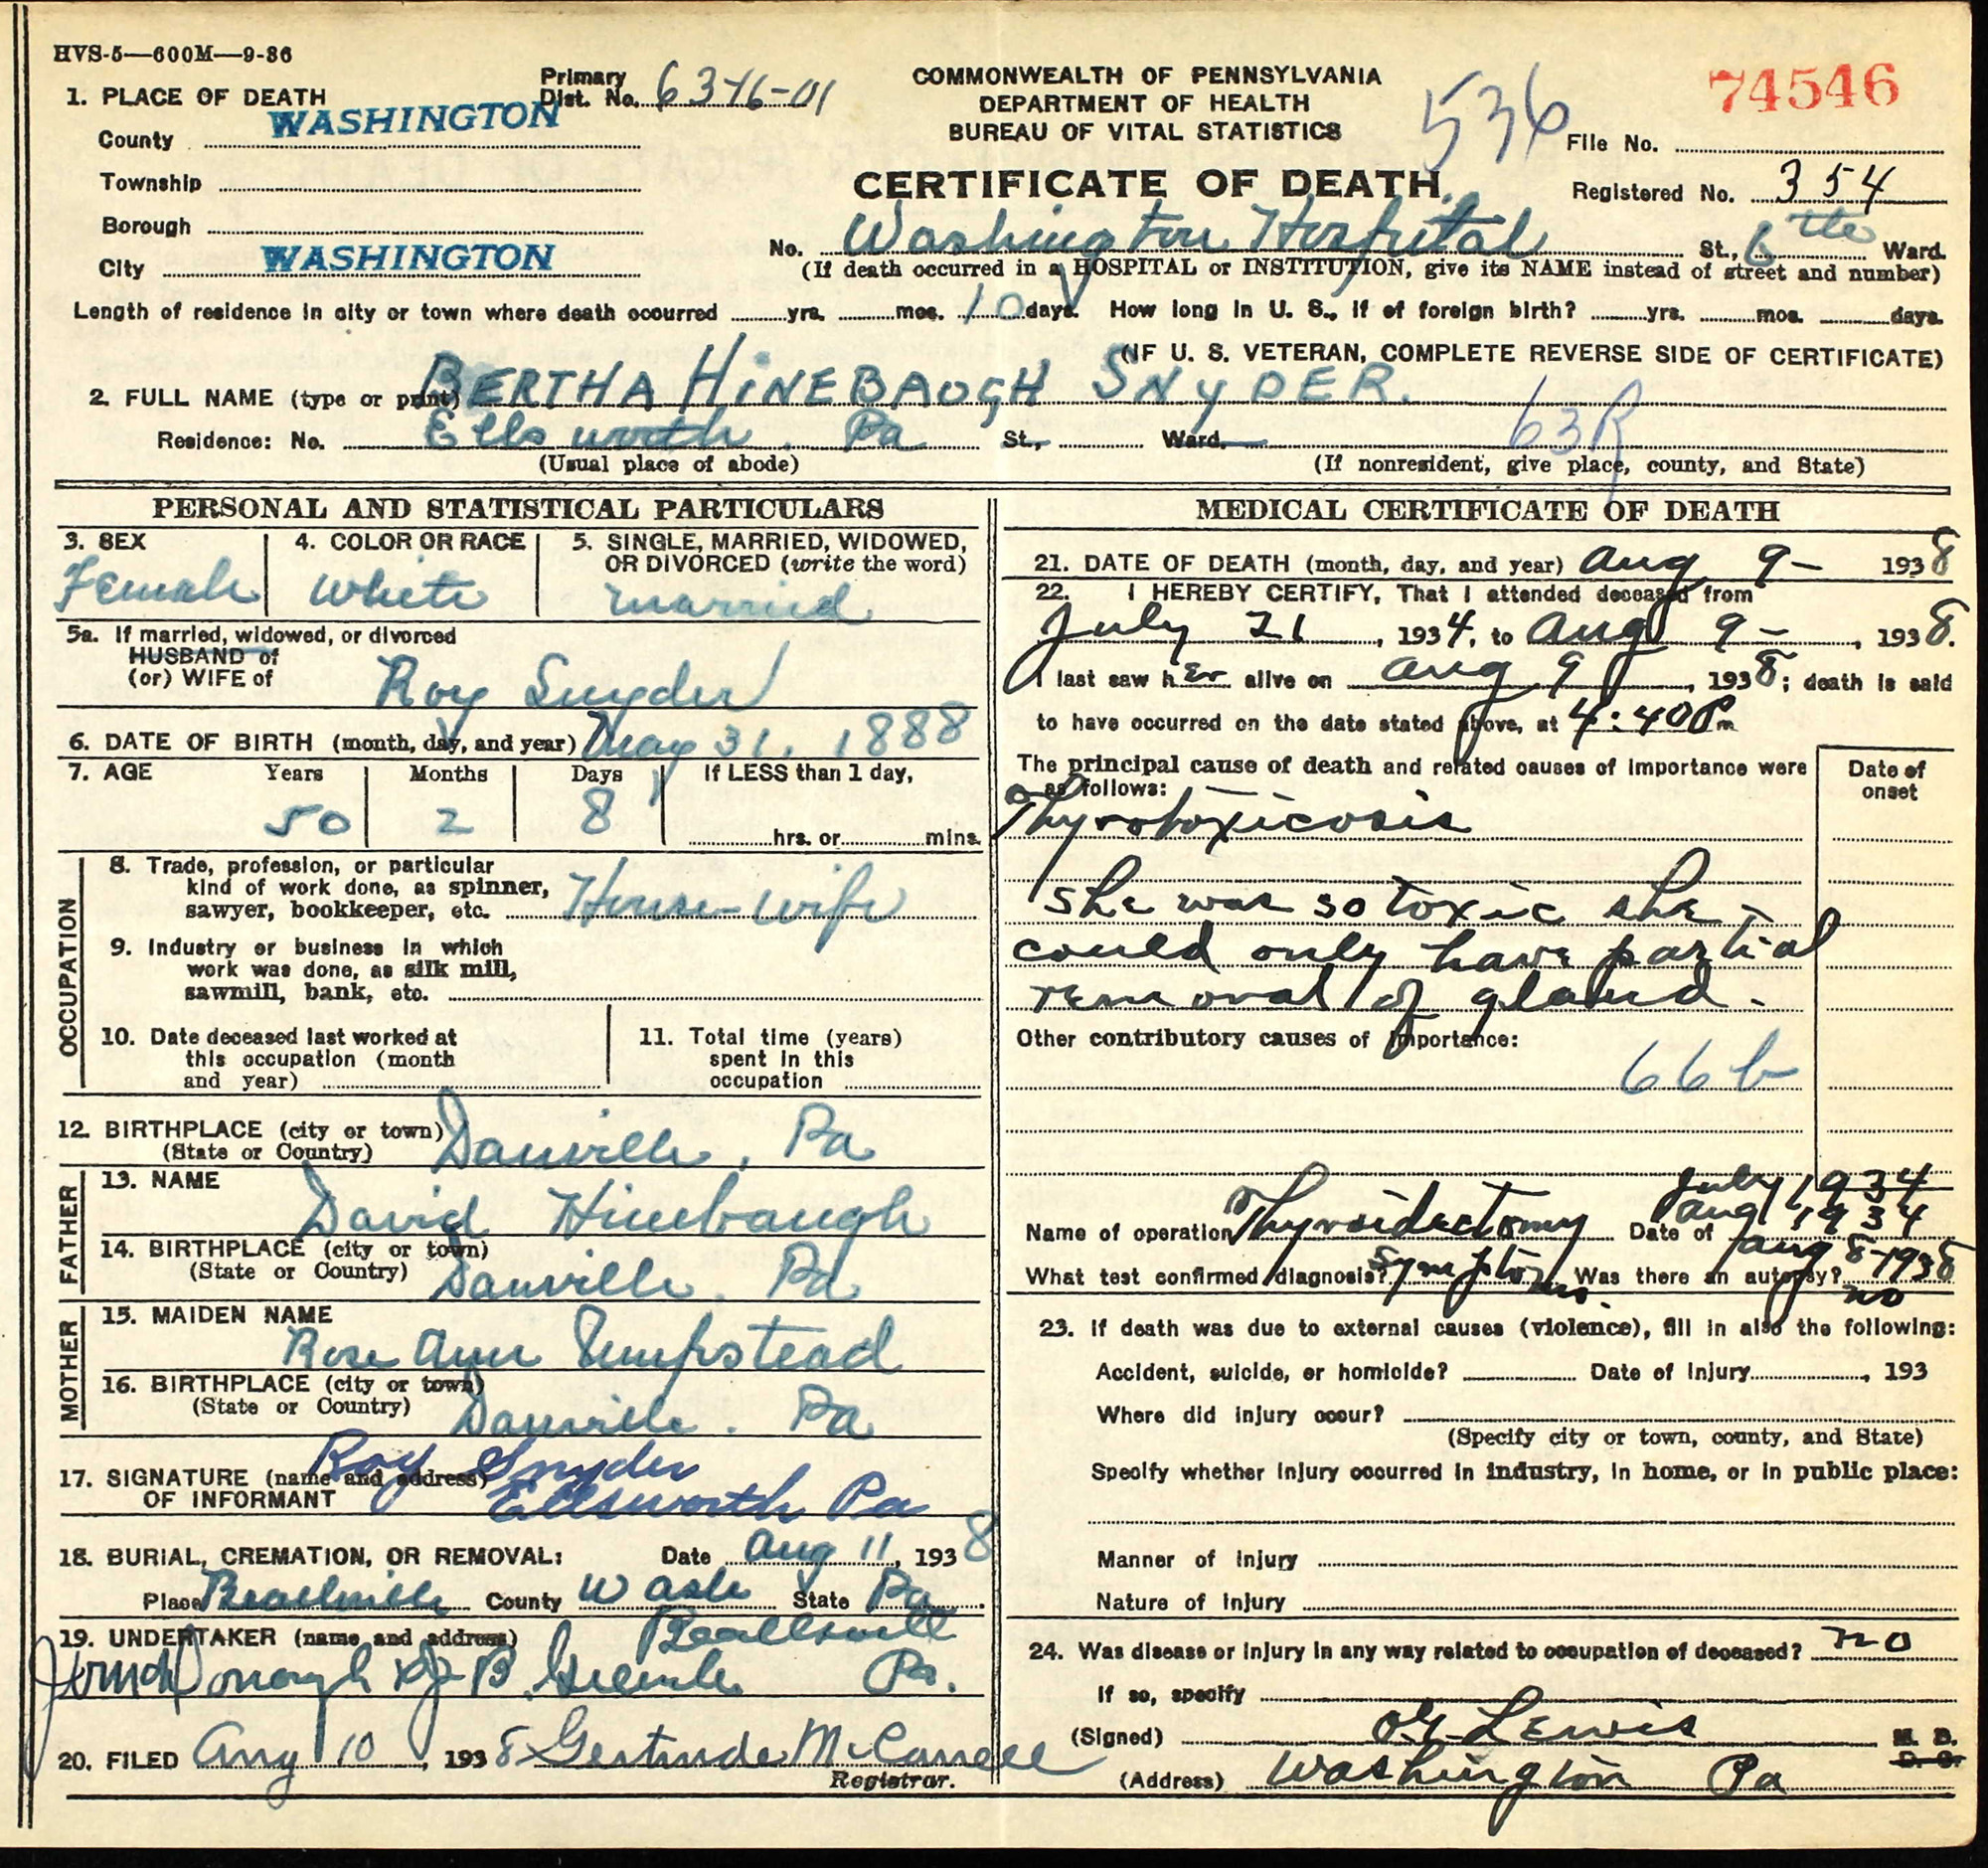 HVS-5—600M—9-36
1. PLACE OF DEATH
Primary Dist. No. 6346-01
County WASHINGTON
Township
Borough
City WASHINGTON
COMMONWEALTH OF PENNSYLVANIA
DEPARTMENT OF HEALTH
BUREAU OF VITAL STATISTICS
CERTIFICATE OF DEATH
536
74546
File No.
Registered No. 354
No. Washington Hospital St., 6th Ward.
(If death occurred in a HOSPITAL or INSTITUTION, give its NAME instead of street and number)
Length of residence in city or town where death occurred yrs. mos. 10 days. How long in U. S., if of foreign birth? yrs. mos. days.
(IF U. S. VETERAN, COMPLETE REVERSE SIDE OF CERTIFICATE)
2. FULL NAME (type or print) BERTHA HINEBAUGH SNYDER.
Residence: No. Ellsworth, Pa St., Ward. 63R
(Usual place of abode) (If nonresident, give place, county, and State)
PERSONAL AND STATISTICAL PARTICULARS
3. SEX
Female
4. COLOR OR RACE
White
5. SINGLE, MARRIED, WIDOWED,
OR DIVORCED (write the word)
married
5a. If married, widowed, or divorced
HUSBAND of
(or) WIFE of Roy Snyder
6. DATE OF BIRTH (month, day, and year) May 31, 1888
7. AGE Years Months Days If LESS than 1 day,
50 2 8 hrs. or mins.
OCCUPATION
8. Trade, profession, or particular
kind of work done, as spinner,
sawyer, bookkeeper, etc. House-wife
9. Industry or business in which
work was done, as silk mill,
sawmill, bank, etc.
10. Date deceased last worked at
this occupation (month
and year)
11. Total time (years)
spent in this
occupation
12. BIRTHPLACE (city or town)
(State or Country) Danville, Pa
FATHER
13. NAME
David Hinebaugh
14. BIRTHPLACE (city or town)
(State or Country) Danville, Pa
MOTHER
15. MAIDEN NAME
Rose Ann
16. BIRTHPLACE (city or town)
(State or Country) Danville, Pa
17. SIGNATURE (name and address)
OF INFORMANT
Roy Snyder
Ellsworth Pa
18. BURIAL, CREMATION, OR REMOVAL: Date Aug 11, 1938
Place Beallsville County Wash State Pa
19. UNDERTAKER (name and address) Beallsville
Pa.
20. FILED Aug 10, 1938 Gertrude McCarrell
Registrar.
MEDICAL CERTIFICATE OF DEATH
21. DATE OF DEATH (month, day, and year) Aug 9- 1938
22. I HEREBY CERTIFY, That I attended deceased from
July 21, 1934, to Aug 9-, 1938.
I last saw her alive on Aug 9, 1938; death is said
to have occurred on the date stated above, at 4:40 Pm
The principal cause of death and related causes of importance were
as follows:
Date of
onset
Thyrotoxicosis
She was so toxic she -
could only have partial
removal of gland.
Other contributory causes of importance:
66b
Name of operation Thyroidectomy Date of July 1934
Aug 1934
Aug 8-1938
What test confirmed diagnosis? symptoms. Was there an autopsy? no
23. If death was due to external causes (violence), fill in also the following:
Accident, suicide, or homicide? Date of injury , 193
Where did injury occur?
(Specify city or town, county, and State)
Specify whether injury occurred in industry, in home, or in public place:
Manner of injury
Nature of injury
24. Was disease or injury in any way related to occupation of deceased? no
If so, specify
(Signed) Lewis M. D.
D. O.
(Address) Washington Pa